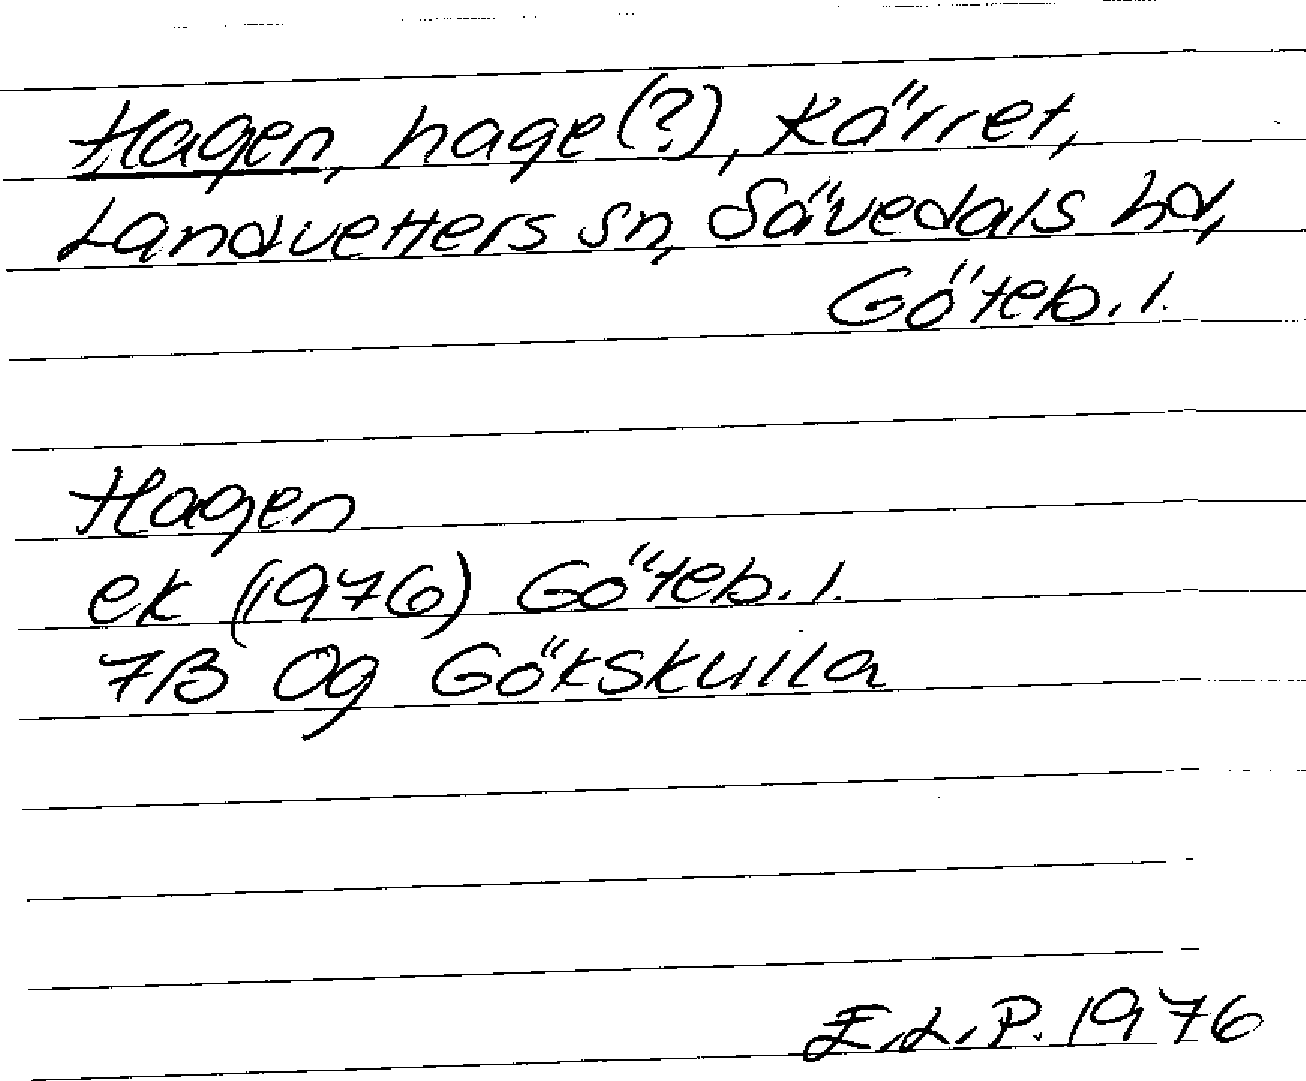 Hagen, hage(?), Kärret,
Landvetters sn, Sävedals hd,
Göteb. l.
Hagen
ek (1976) Göteb. l.
7B 0g Gökskulla
E.L.P. 1976